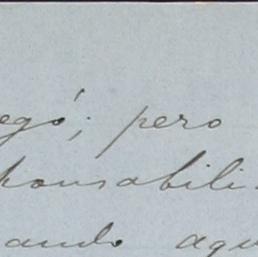 egó; pero
ponsabili
ando aqu